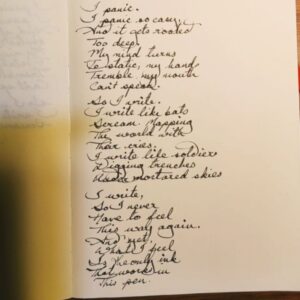 I panic.
I panic so easy,
And it gets rooted
Too deep.
My mind turns
To static, my hands
Tremble my mouth
Can't speak.
So I write.
I write like bats
Scream Mapping
The world with
Their cries.
I write like soldiers
Digging trenches
Under mortared skies
I write,
So I never
Have to feel
This way again.
And yet,
What I feel
Is the only ink
That works in
This pen.